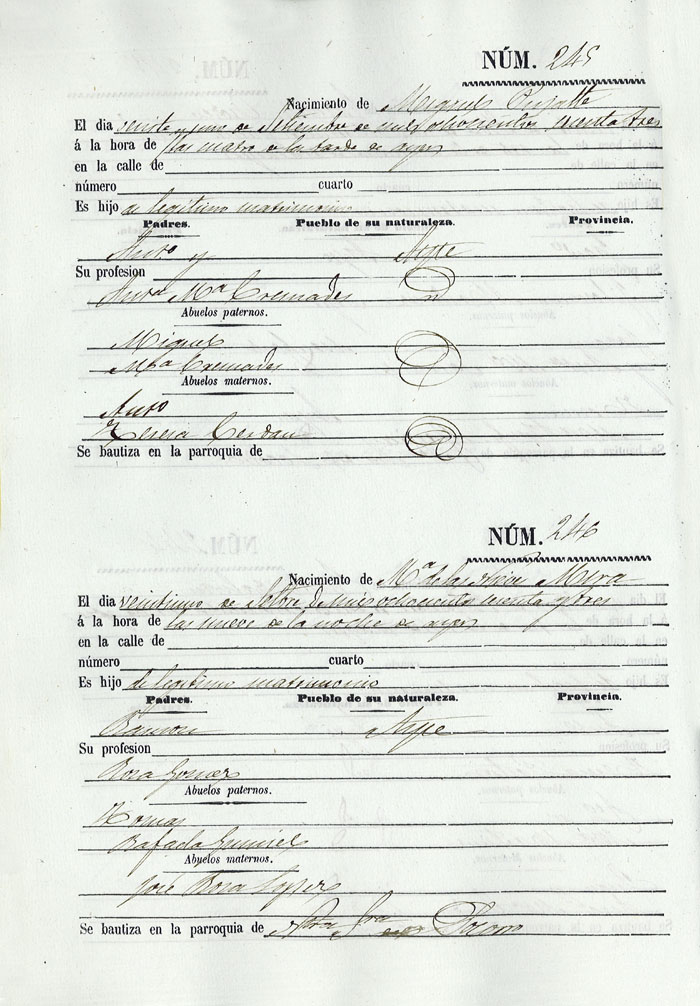 NÚM. 245
Nacimiento de Miguel
El dia veinte y uno de Setiembre de mil ochocientos sesenta y tres
á la hora de las cuatro de la tarde de ayer
en la calle de
número cuarto
Es hijo de legitimo matrimonio
Padres. Pueblo de su naturaleza. Provincia.
Anto y Aspe
Su profesion
Anta Ma Cremades
Abuelos paternos.
Miguel
Ma Cremades
Abuelos maternos.
Anto
Teresa Cerdan
Se bautiza en la parroquia de
NÚM. 246
Nacimiento de Ma de las Nieves Mira
El dia veintiuno de Setbre de mil ochocientos sesenta y tres
á la hora de las nueve de la noche de ayer
en la calle de
número cuarto
Es hijo de legitimo matrimonio
Padres. Pueblo de su naturaleza. Provincia.
Ramon Aspe
Su profesion
Rosa Gomez
Abuelos paternos.
Tomas
Rafaela
Abuelos maternos.
José Rosa Lopez
Se bautiza en la parroquia de Ntra Sra del Socorro